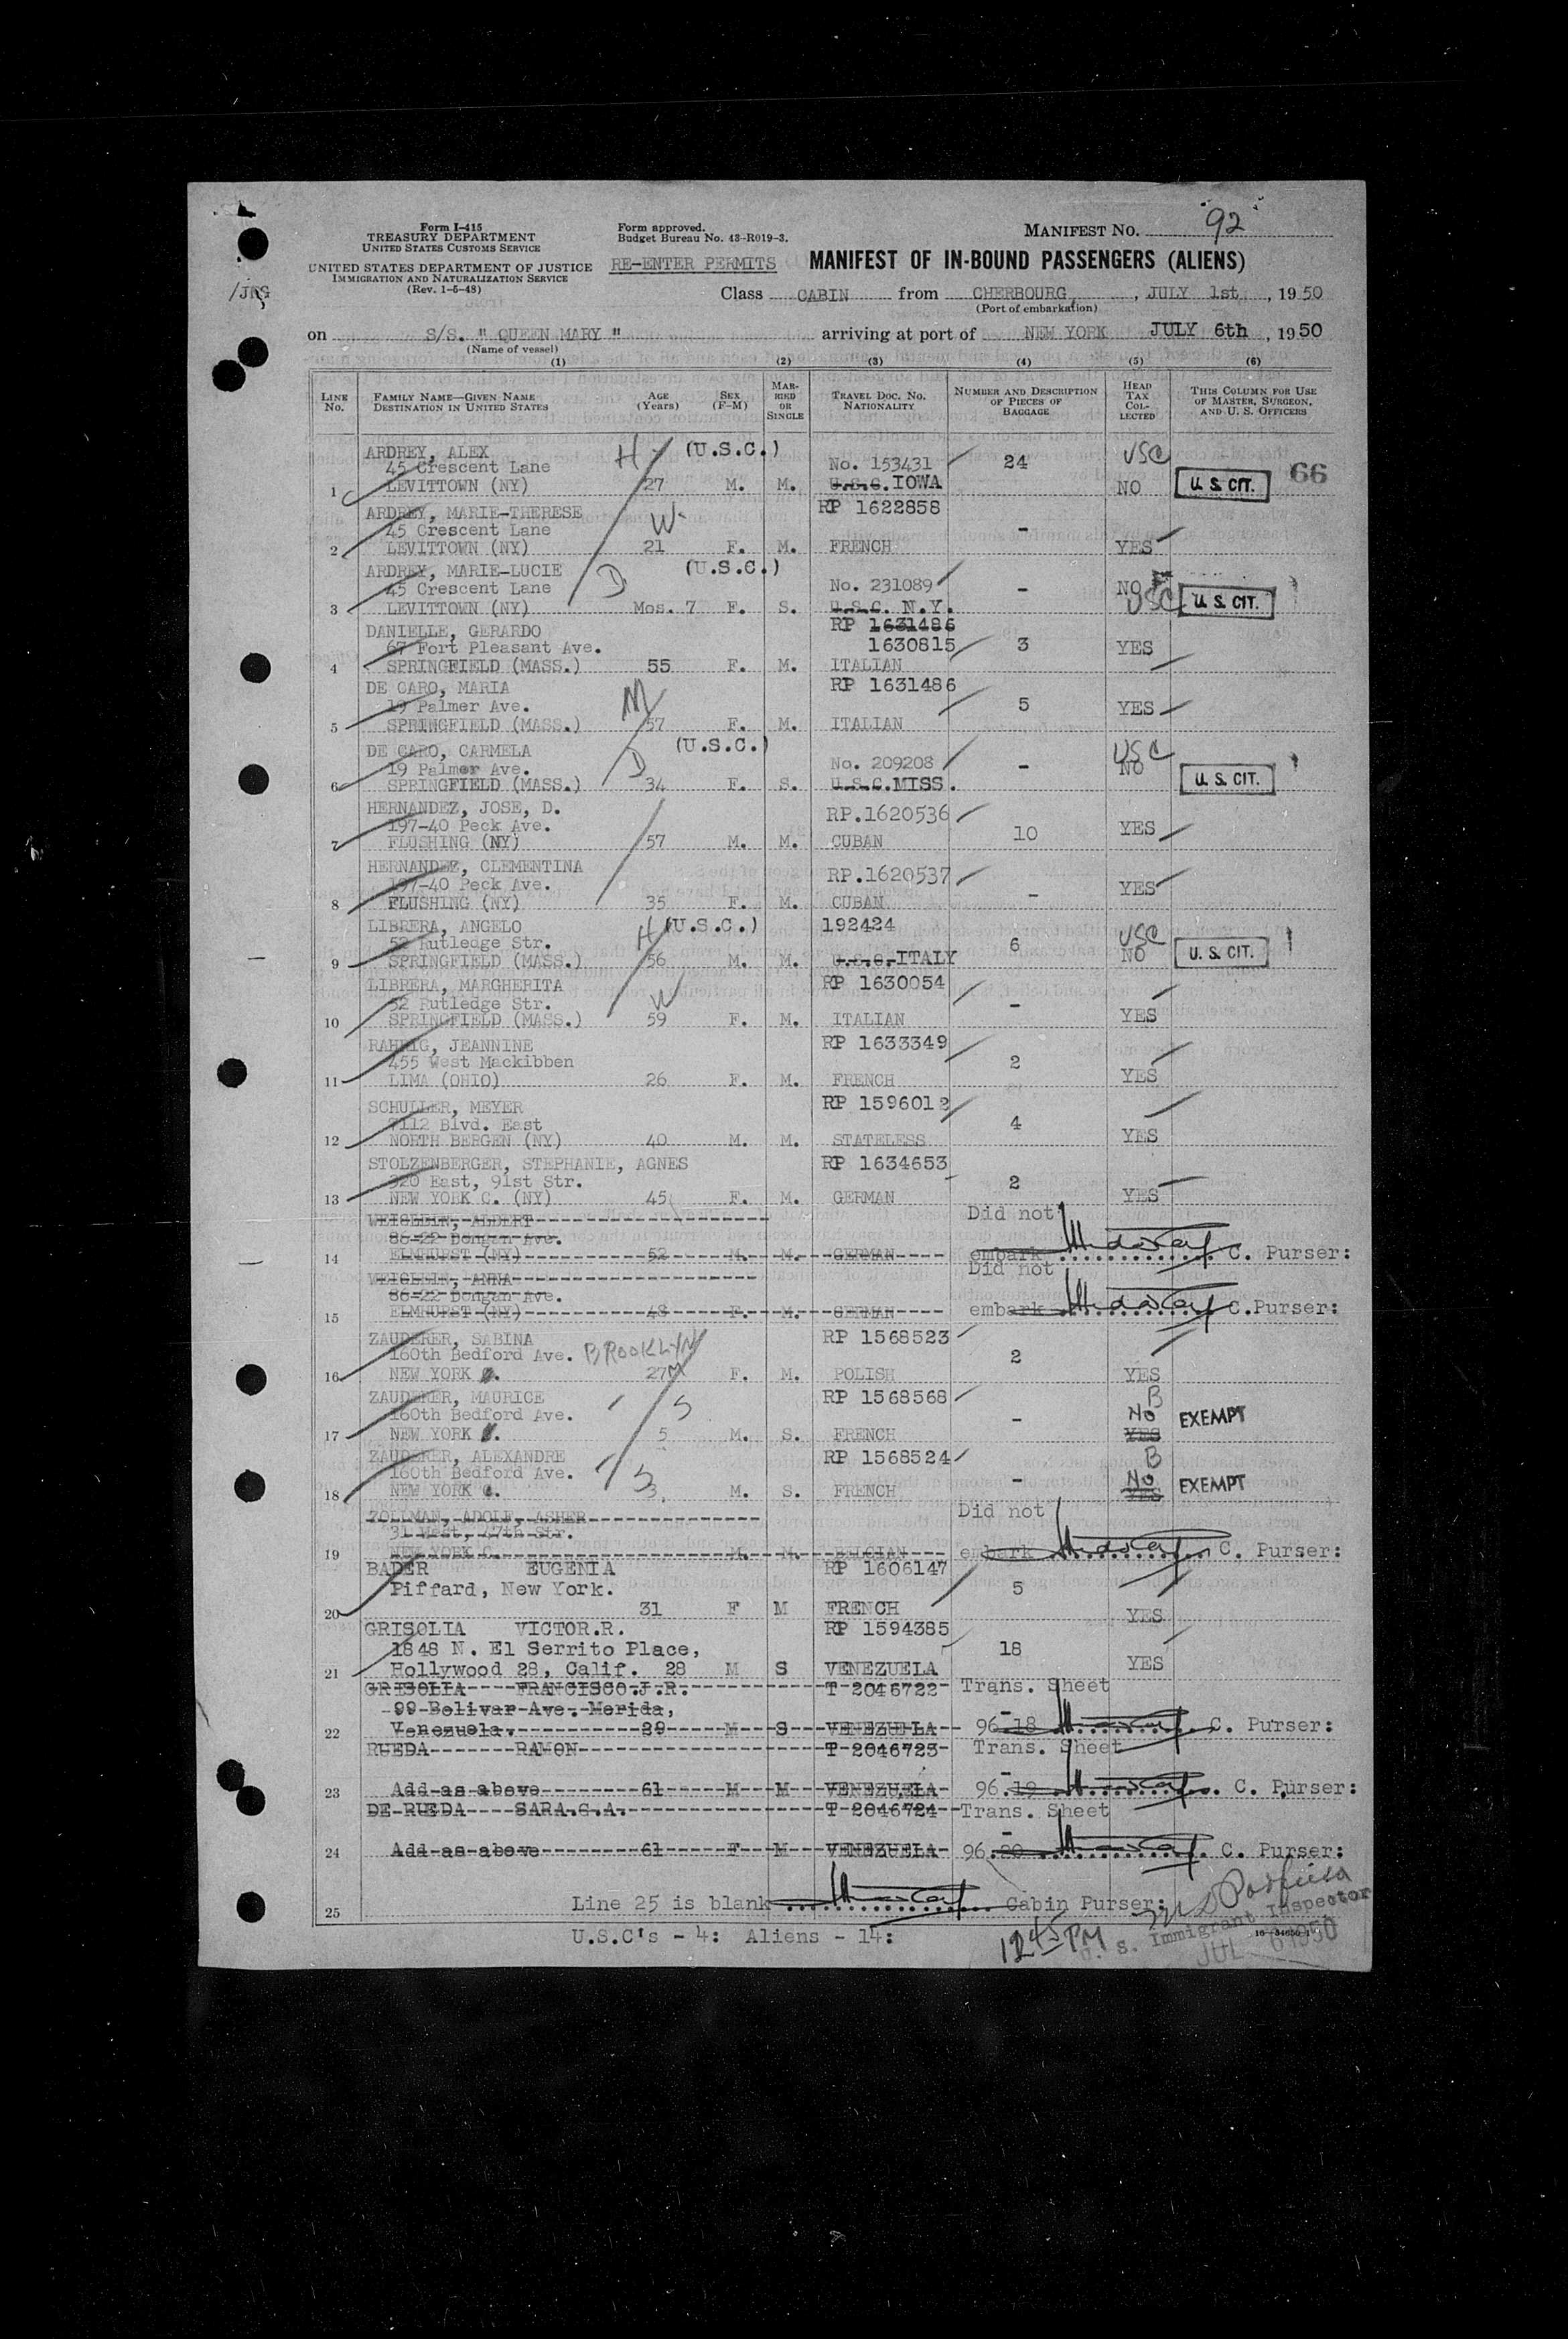 Form I-415
TREASURY DEPARTMENT
UNITED STATES CUSTOMS SERVICE
UNITED STATES DEPARTMENT OF JUSTICE
IMMIGRATION AND NATURALIZATION SERVICE
(Rev. 1-5-48)
Form approved.
Budget Bureau No. 43-R019-3.
MANIFEST NO. 92
RE-ENTER PERMITS
MANIFEST OF IN-BOUND PASSENGERS (ALIENS)
Class CABIN from CHERBOURG, , JULY 1st , 1950
(Port of embarkation)
on S/S. " QUEEN MARY " arriving at port of NEW YORK JULY 6th , 1950
(Name of vessel)
(1) (2) (3) (4) (5) (6)
LINE NO. FAMILY NAME—GIVEN NAME DESTINATION IN UNITED STATES AGE (Years) SEX (F-M) MARRIED OR SINGLE TRAVEL DOC. NO. NATIONALITY NUMBER AND DESCRIPTION OF PIECES OF BAGGAGE HEAD TAX COLLECTED THIS COLUMN FOR USE OF MASTER, SURGEON, AND U. S. OFFICERS
ARDREY, ALEX H (U.S.C.) USC
45 Crescent Lane No. 153431 24 66
1 LEVITTOWN (NY) 27 M. M. U.S.C. IOWA NO U. S. CIT.
ARDREY, MARIE-THERESE W RP 1622858
45 Crescent Lane -
2 LEVITTOWN (NY) 21 F. M. FRENCH YES
ARDREY, MARIE-LUCIE D (U.S.C.)
45 Crescent Lane No. 231089 - NO
3 LEVITTOWN (NY) Mos. 7 F. S. U.S.C. N.Y. USC U. S. CIT.
DANIELLE, GERARDO RP 1631486
67 Fort Pleasant Ave. 1630815 3 YES
4 SPRINGFIELD (MASS.) 55 F. M. ITALIAN
DE CARO, MARIA M RP 1631486
19 Palmer Ave. 5 YES
5 SPRINGFIELD (MASS.) 57 F. M. ITALIAN
DE CARO, CARMELA (U.S.C.) USC
19 Palmer Ave. D No. 209208 - NO
6 SPRINGFIELD (MASS.) 34 F. S. U.S.C. MISS. U. S. CIT.
HERNANDEZ, JOSE, D. RP.1620536
197-40 Peck Ave. 10 YES
7 FLUSHING (NY) 57 M. M. CUBAN
HERNANDEZ, CLEMENTINA RP.1620537
197-40 Peck Ave. - YES
8 FLUSHING (NY) 35 F. M. CUBAN
LIBRERA, ANGELO H (U.S.C.) 192424 USC
52 Rutledge Str. 6 NO
9 SPRINGFIELD (MASS.) 56 M. M. U.S.C. ITALY U. S. CIT.
LIBRERA, MARGHERITA W RP 1630054
52 Rutledge Str. -
10 SPRINGFIELD (MASS.) 59 F. M. ITALIAN YES
RAHRIG, JEANNINE RP 1633349
455 West Mackibben 2
11 LIMA (OHIO) 26 F. M. FRENCH YES
SCHULLER, MEYER RP 1596012
7112 Blvd. East 4
12 NORTH BERGEN (NY) 40 M. M. STATELESS YES
STOLZENBERGER, STEPHANIE, AGNES RP 1634653
320 East, 91st Str. 2
13 NEW YORK C. (NY) 45 F. M. GERMAN YES
WEIGLEIN, ALBERT Did not
86-22 Dongan Ave.
14 ELMHURST (NY) 52 M. M. GERMAN embark C. Purser:
WEIGLEIN, ANNA Did not
86-22 Dongan Ave.
15 ELMHURST (NY) 48 F. M. GERMAN embark C.Purser:
ZAUDERER, SABINA RP 1568523
160th Bedford Ave. BROOKLYN 2
16 NEW YORK 27 M F. M. POLISH YES
ZAUDERER, MAURICE RP 1568568 B
160th Bedford Ave. S - NO EXEMPT
17 NEW YORK 5 M. S. FRENCH YES
ZAUDERER, ALEXANDRE RP 1568524 B
160th Bedford Ave. S - NO EXEMPT
18 NEW YORK C. 3. M. S. FRENCH YES
ZOLLMAN, ADOLF, ASHER Did not
31 West, 47th Str.
19 NEW YORK C. M. M. BELGIAN embark C. Purser:
BADER EUGENIA RP 1606147
Piffard, New York. 5
20 31 F M FRENCH YES
GRISOLIA VICTOR.R. RP 1594385
1848 N. El Serrito Place, 18
21 Hollywood 28, Calif. 28 M S VENEZUELA YES
GRISOLIA FRANCISCO.J.R. T 2046722 Trans. Sheet
99 Bolivar Ave. Merida,
22 Venezuela. 29 M S VENEZUELA 96-18 C. Purser:
RUEDA RAMON T 2046723 Trans. Sheet
23 Add as above 61 M M VENEZUELA 96-19 C. Purser:
DE RUEDA SARA.C.A. T 2046724 Trans. Sheet
24 Add as above 61 F M VENEZUELA 96-20 C. Purser:
25 Line 25 is blank Cabin Purser:
U.S.C's - 4: Aliens - 14:
12 45 PM
U. S. Immigrant Inspector
JUL 6 1950